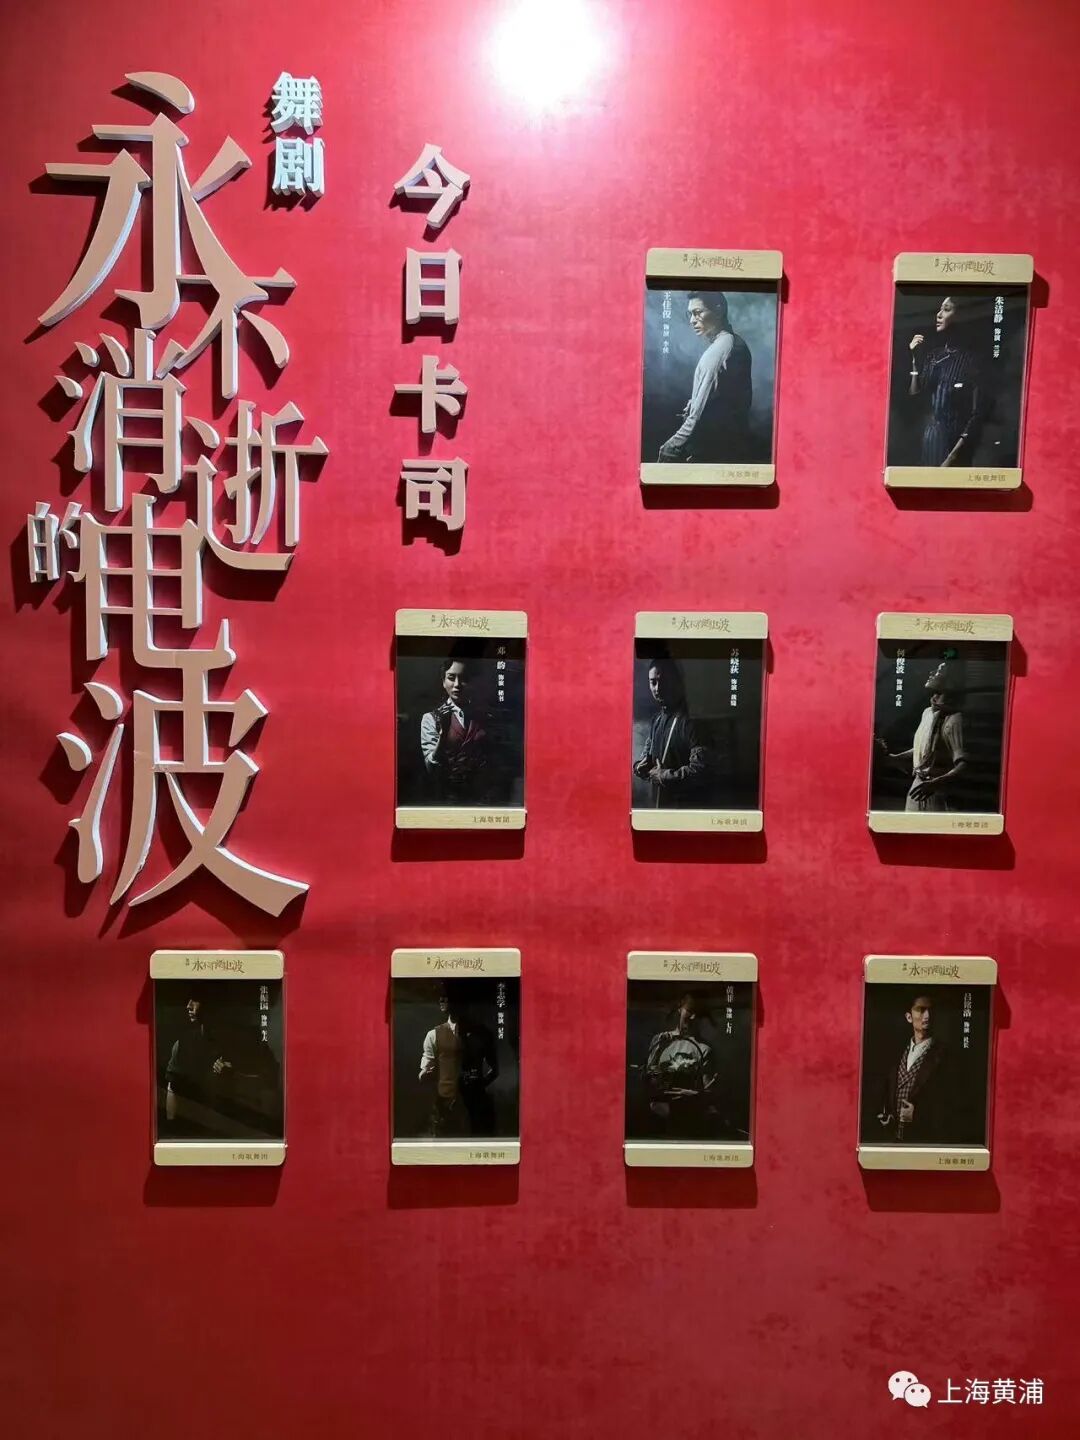 舞剧
永不消逝的电波
今日卡司
永不消逝的电波
王佳俊 饰演 李侠
上海歌舞团
永不消逝的电波
朱洁静 饰演 兰芬
上海歌舞团
永不消逝的电波
邓韵 饰演 秘书
上海歌舞团
永不消逝的电波
苏晓荻 饰演 裁缝
上海歌舞团
永不消逝的电波
何俊波 饰演 学徒
上海歌舞团
永不消逝的电波
张振国 饰演 车夫
上海歌舞团
永不消逝的电波
李志学 饰演 记者
上海歌舞团
永不消逝的电波
黄菲 饰演 七月
上海歌舞团
永不消逝的电波
吕铭浩 饰演 社长
上海歌舞团
上海黄浦